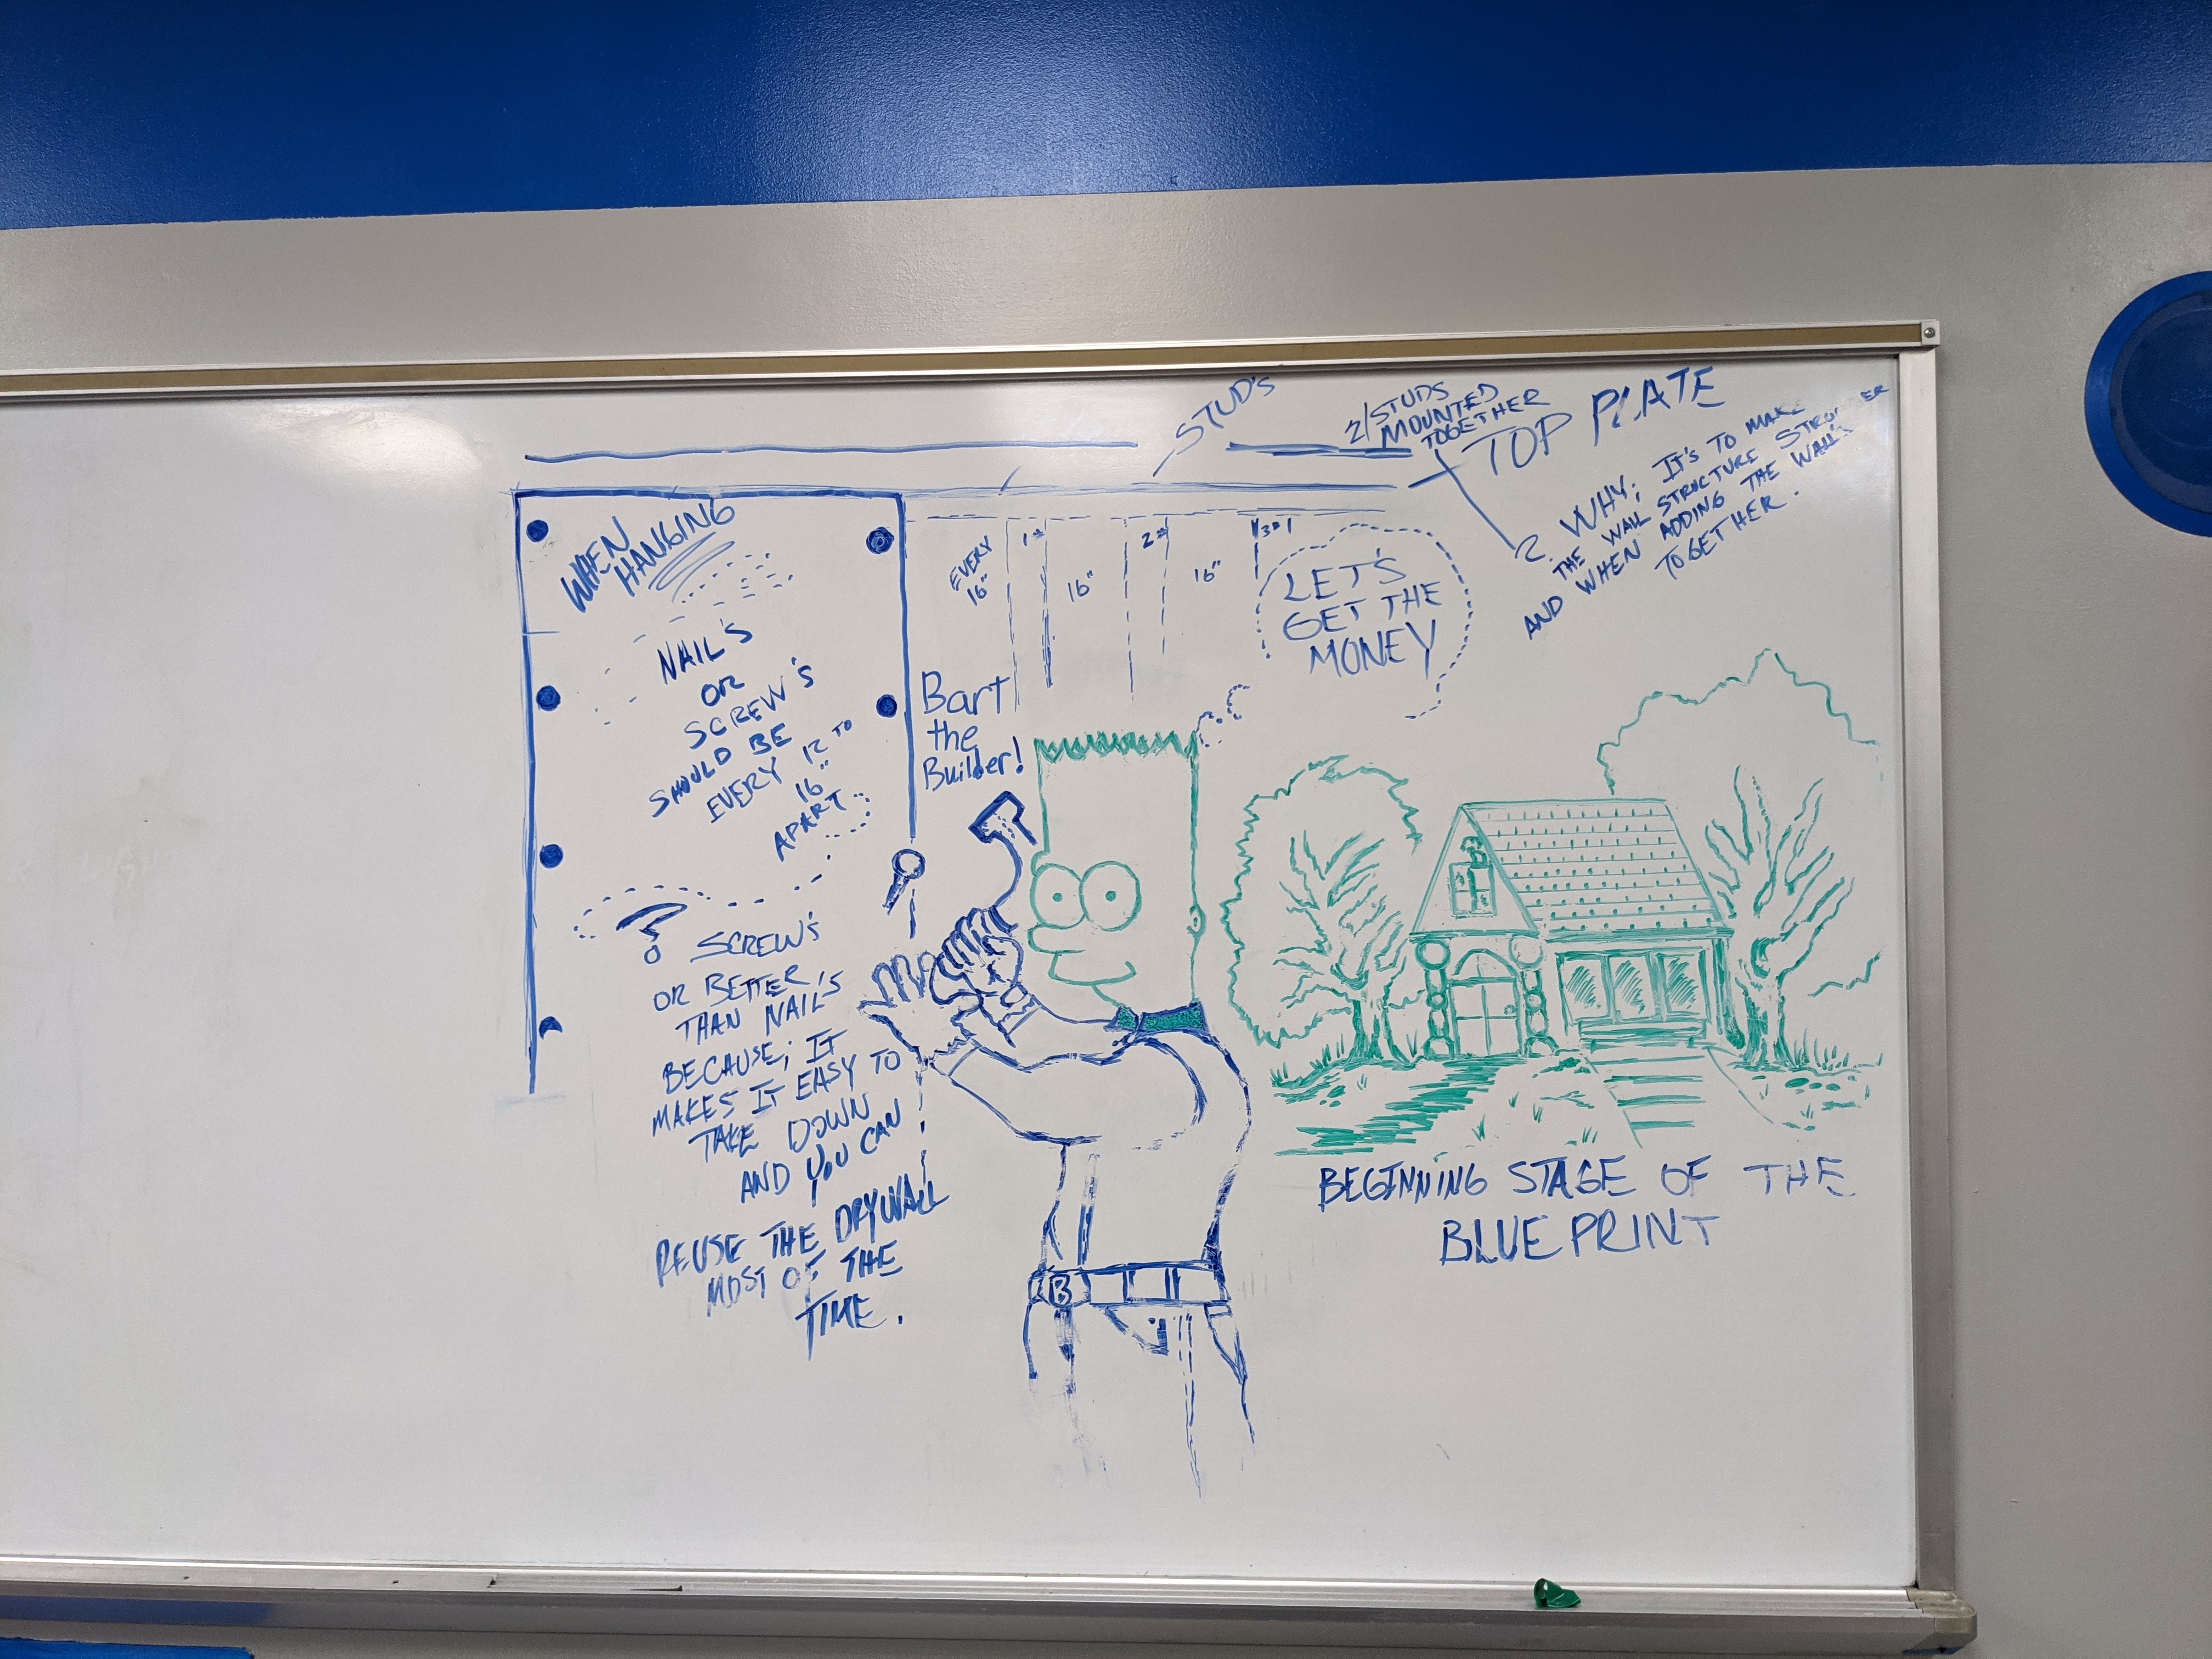 STUD'S
2/STUDS
MOUNTED
TOGETHER
TOP PLATE
2. WHY; IT'S TO MAKE
THE WALL STRUCTURE
AND WHEN ADDING THE WALL'S
TOGETHER.
WHEN
HANGING
NAIL'S
OR
SCREW'S
SHOULD BE
EVERY 12 TO
16"
APART
SCREW'S
OR BETTER
THAN NAIL'S
BECAUSE; IT
MAKES IT EASY TO
TAKE DOWN
AND YOU CAN
REUSE THE DRYWALL
MOST OF THE
TIME.
EVERY
16"
1st
16"
2nd
16"
LET'S
GET THE
MONEY
Bart
the
Builder!
B
BEGINNING STAGE OF THE
BLUE PRINT